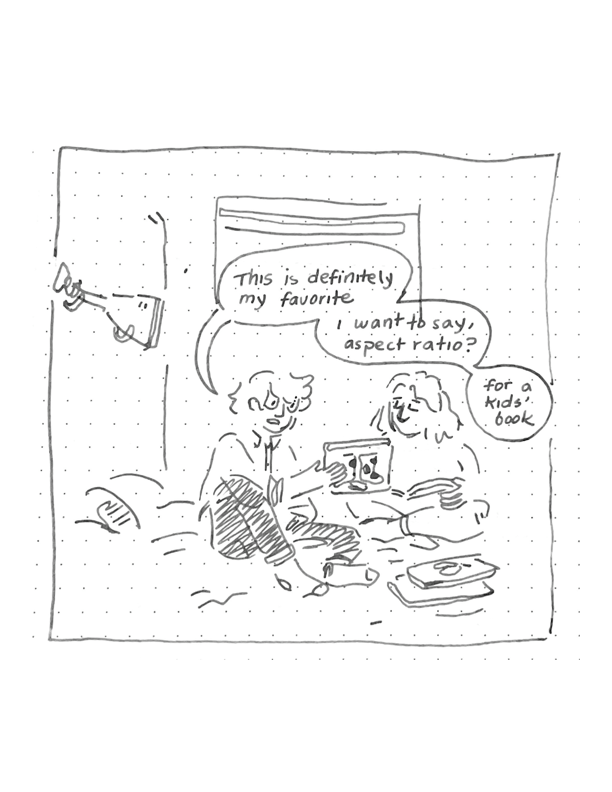 This is definitely
my favorite
I want to say,
aspect ratio?
for a
kids'
book